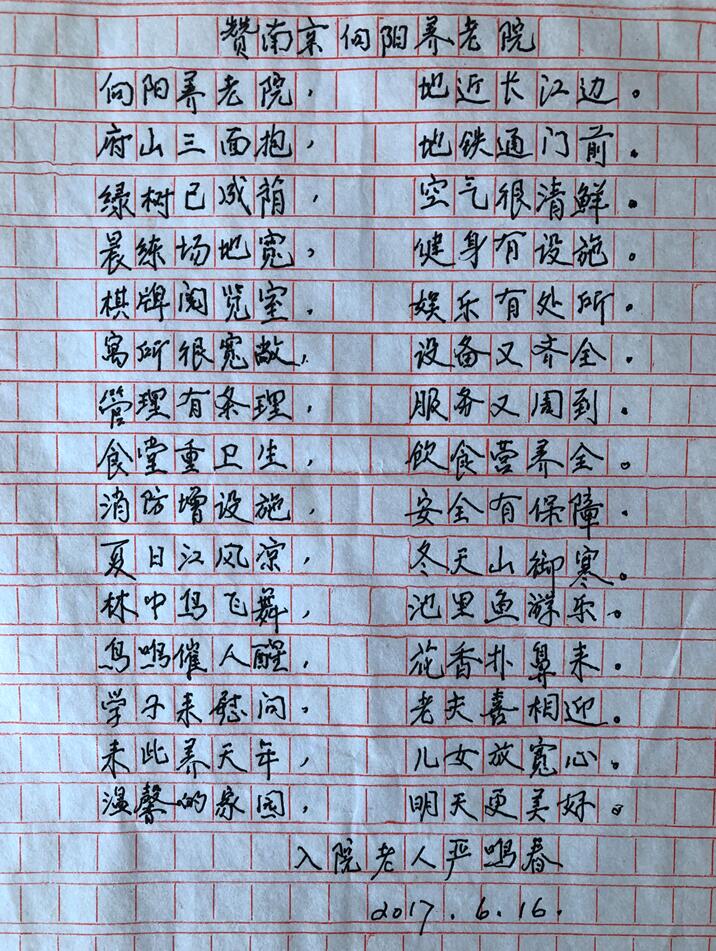 赞南京向阳养老院
向阳养老院， 地近长江边。
府山三面抱， 地铁通门前。
绿树已成荫， 空气很清鲜。
晨练场地宽， 健身有设施。
棋牌阅览室． 娱乐有处所．
寓所很宽敞， 设备又齐全．
管理有条理， 服务又周到．
食堂重卫生， 饮食营养全。
消防增设施， 安全有保障．
夏日江风凉， 冬天山御寒。
林中鸟飞舞， 池里鱼游乐．
鸟鸣催人醒， 花香扑鼻来．
学子来慰问． 老夫喜相迎。
来此养天年， 儿女放宽心．
温馨的家园， 明天更美好。
入院老人严鸣春
2017.6.16.